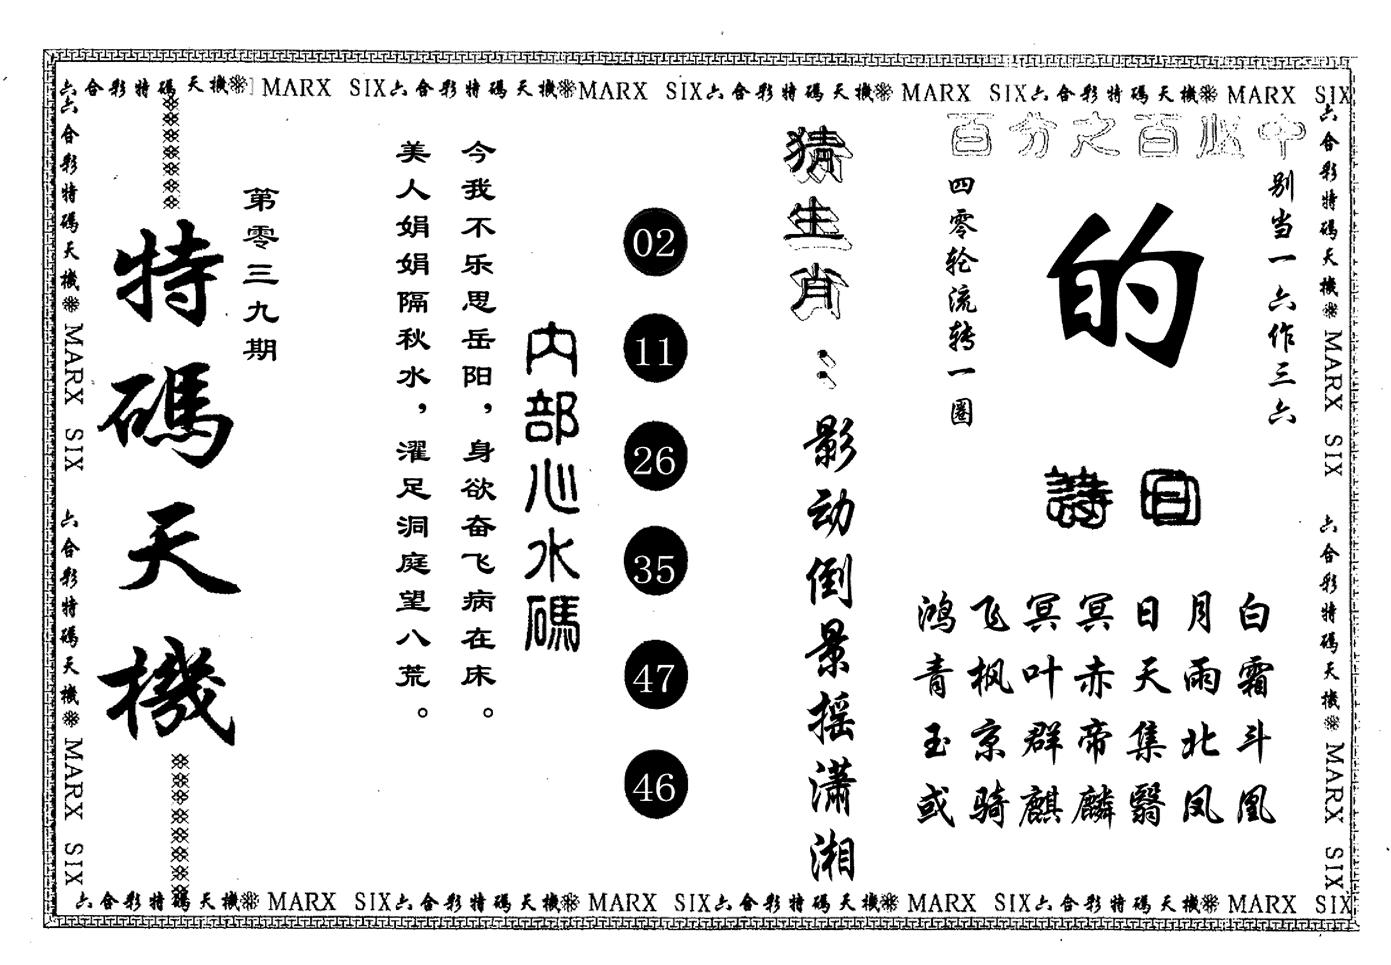 六合彩特碼天機❊ MARX SIX六合彩特碼天機❊MARX SIX六合彩特碼天機❊ MARX SIX六合彩特碼天機❊ MARX SIX
六合彩特碼天機❊ MARX SIX 六合彩特碼天機❊ MARX SIX
百分之百必中
别当一六作三六
的
四零轮流转一圈
詩曰
鸿飞冥冥日月白
青枫叶赤天雨霜
玉京群帝集北斗
或骑麒麟翳凤凰
猜生肖：影动倒景摇潇湘
02
11
26
35
47
46
内部心水碼
今我不乐思岳阳，身欲奋飞病在床。
美人娟娟隔秋水，濯足洞庭望八荒。
第零三九期
特碼天機
六合彩特碼天機❊ MARX SIX 六合彩特碼天機❊ MARX SIX
六合彩特碼天機❊ MARX SIX六合彩特碼天機❊ MARX SIX六合彩特碼天機❊ MARX SIX六合彩特碼天機❊ MARX SIX